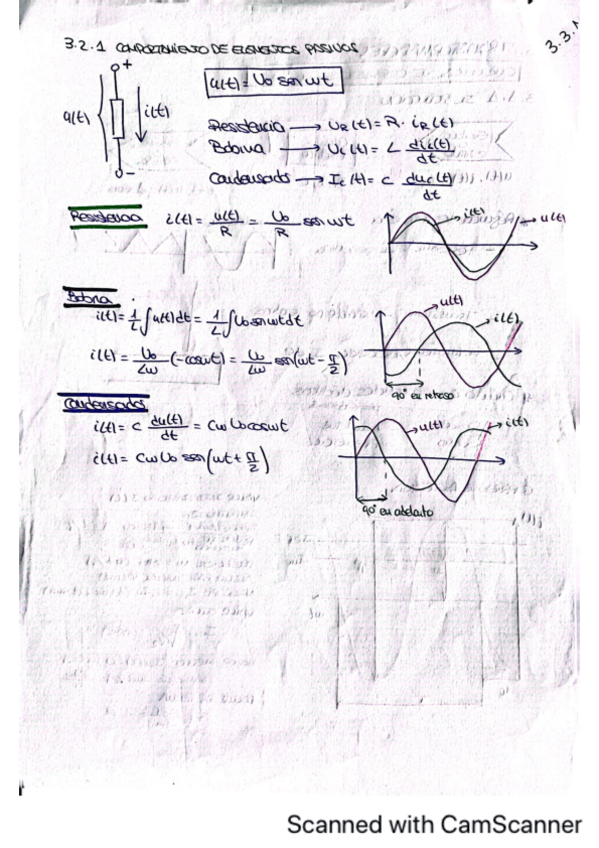 3.2.1 COMPORTAMIENTO DE ELEMENTOS PASIVOS
3.3.
+
u(t)
i(t)
-
u(t) = U₀ sen ωt
Resistencia → U_R(t) = R · i_R(t)
Bobina → U_L(t) = L di_L(t)/dt
Condensador → I_c(t) = C du_c(t)/dt
Resistencia i(t) = u(t)/R = U₀/R sen ωt
i(t)
u(t)
Bobina
i(t) = 1/L ∫ u(t) dt = 1/L ∫ U₀ sen ωt dt
i(t) = U₀/Lω (-cos ωt) = U₀/Lω sen(ωt - π/2)
u(t)
i(t)
90° en retraso
Condensador
i(t) = C du(t)/dt = Cω U₀ cos ωt
i(t) = Cω U₀ sen(ωt + π/2)
u(t)
i(t)
90° en adelanto
Scanned with CamScanner